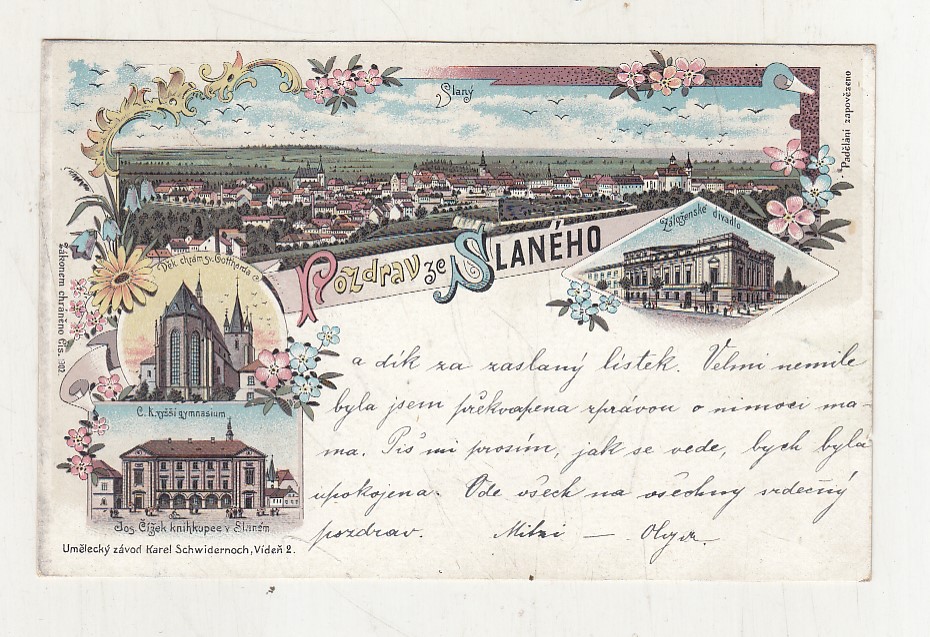 Slaný
Padělání zapovězeno
Záloženské divadlo
Pozdrav ze SLANÉHO
Děk. chrám sv. Gottharda
Zákonem chráněno čís. 302.
C. k. vyšší gymnasium
Jos. Čížek knihkupec v Slaném
Umělecký závod Karel Schwidernoch, Vídeň 2.
a dík za zaslaný lístek. Velmi nemile
byla jsem překvapena zprávou o nemoci ma-
ma. Piš mi prosím, jak se vede, bych byla
upokojena. Ode všech na všechny srdečný
pozdrav. Mitzi — Olga.